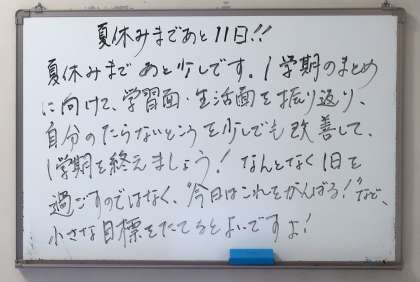 夏休みまであと11日!!
夏休みまであと少しです。1学期のまとめ
に向けて、学習面・生活面を振り返り、
自分のたらないところを少しでも改善して、
1学期を終えましょう！なんとなく1日を
過ごすのではなく、“今日はこれをがんばる！”など、
小さな目標をたてるとよいですよ！